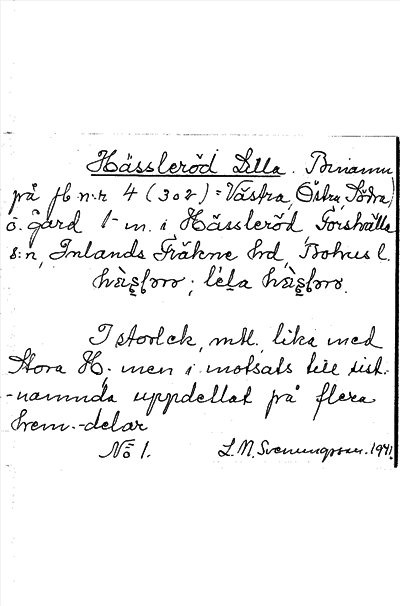 Hässleröd Lilla. Binamn
på jb n:r 4 (302) = Västra, Östra, Södra
o. gård 1 m. i Hässleröd Forshälla
s:n, Inlands Fräkne hd, Bohus l.
I storlek, mtl. lika med
Stora H. men i motsats till sist-
-nämnda uppdellat på flera
hem.-delar
No 1. L. M. Svenungsson. 1941.